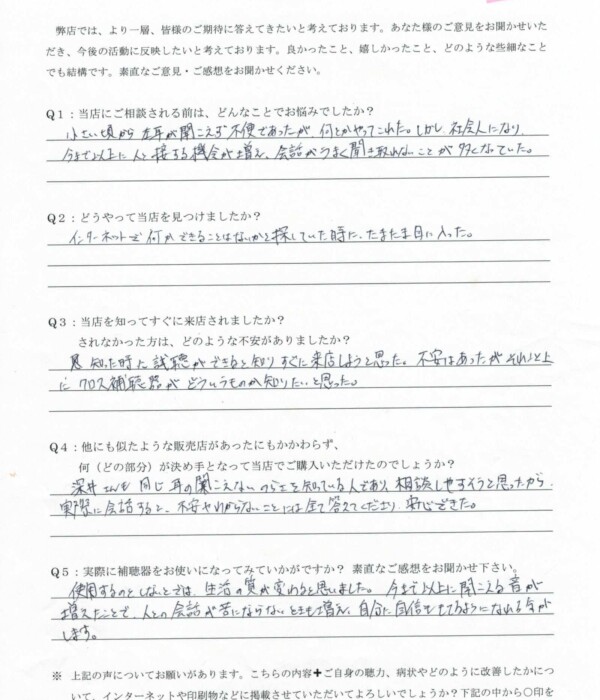 弊店では、より一層、皆様のご期待に答えてきたいと考えております。あなた様のご意見をお聞かせいた
だき、今後の活動に反映したいと考えております。良かったこと、嬉しかったこと、どのような些細なこと
でも結構です。素直なご意見・ご感想をお聞かせください。
Q1：当店にご相談される前は、どんなことでお悩みでしたか？
小さい頃から左耳が聞こえず不便であったが、何とかやってこれた。しかし、社会人になり、
今まで以上に人と接する機会が増え、会話がうまく聞き取れないことが多くなっていた。
Q2：どうやって当店を見つけましたか？
インターネットで何かできることはないかと探していた時に、たまたま目に入った。
Q3：当店を知ってすぐに来店されましたか？
されなかった方は、どのような不安がありましたか？
知った時に試聴ができると知りすぐに来店しようと思った。不安はあったがそれ以上
にクロス補聴器がどういうものか知りたいと思った。
Q4：他にも似たような販売店があったにもかかわらず、
何（どの部分）が決め手となって当店でご購入いただけたのでしょうか？
深井さんも同じ耳の聞こえないつらさを知っている人であり、相談しやすそうと思ったから。
実際に会話すると、不安やわからないことには全て答えてくださり、安心できた。
Q5：実際に補聴器をお使いになってみていかがですか？ 素直なご感想をお聞かせ下さい。
使用するのとしないとでは、生活の質が変わると思いました。今まで以上に聞こえる音が
増えたことで、人との会話が苦にならないときも増え、自分に自信をもてるようになれる気が
します。
※ 上記の声についてお願いがあります。こちらの内容✚ご自身の聴力、病状やどのように改善したかにつ
いて、インターネットや印刷物などに掲載させていただいてよろしいでしょうか？下記の中から〇印を